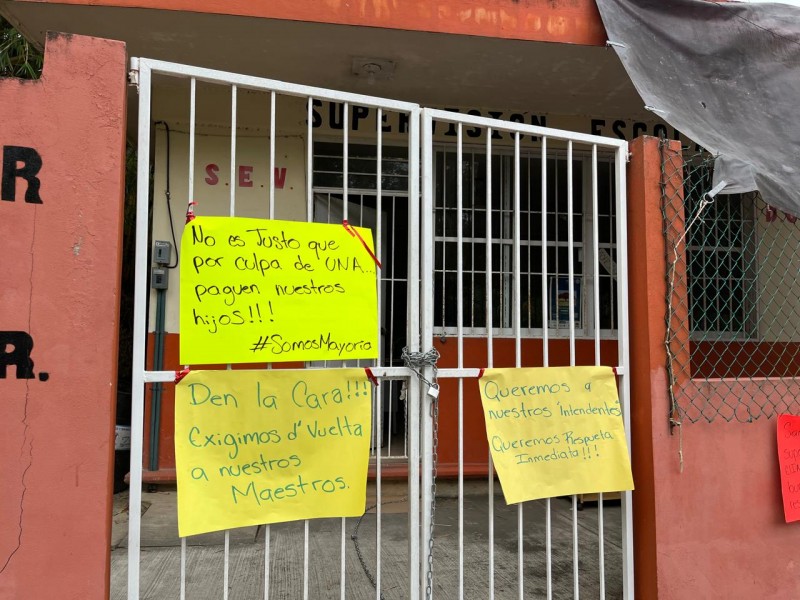 SUPERVISIÓN ESCOL
S.E.V.
R
R.
No es Justo que
por culpa de UNA...
paguen nuestros
hijos!!!
#SomosMayoria
Den la Cara!!!
Exigimos d' Vuelta
a nuestros
Maestros.
Queremos a
nuestros "Intendentes"
Queremos Respuesta
Inmediata!!!